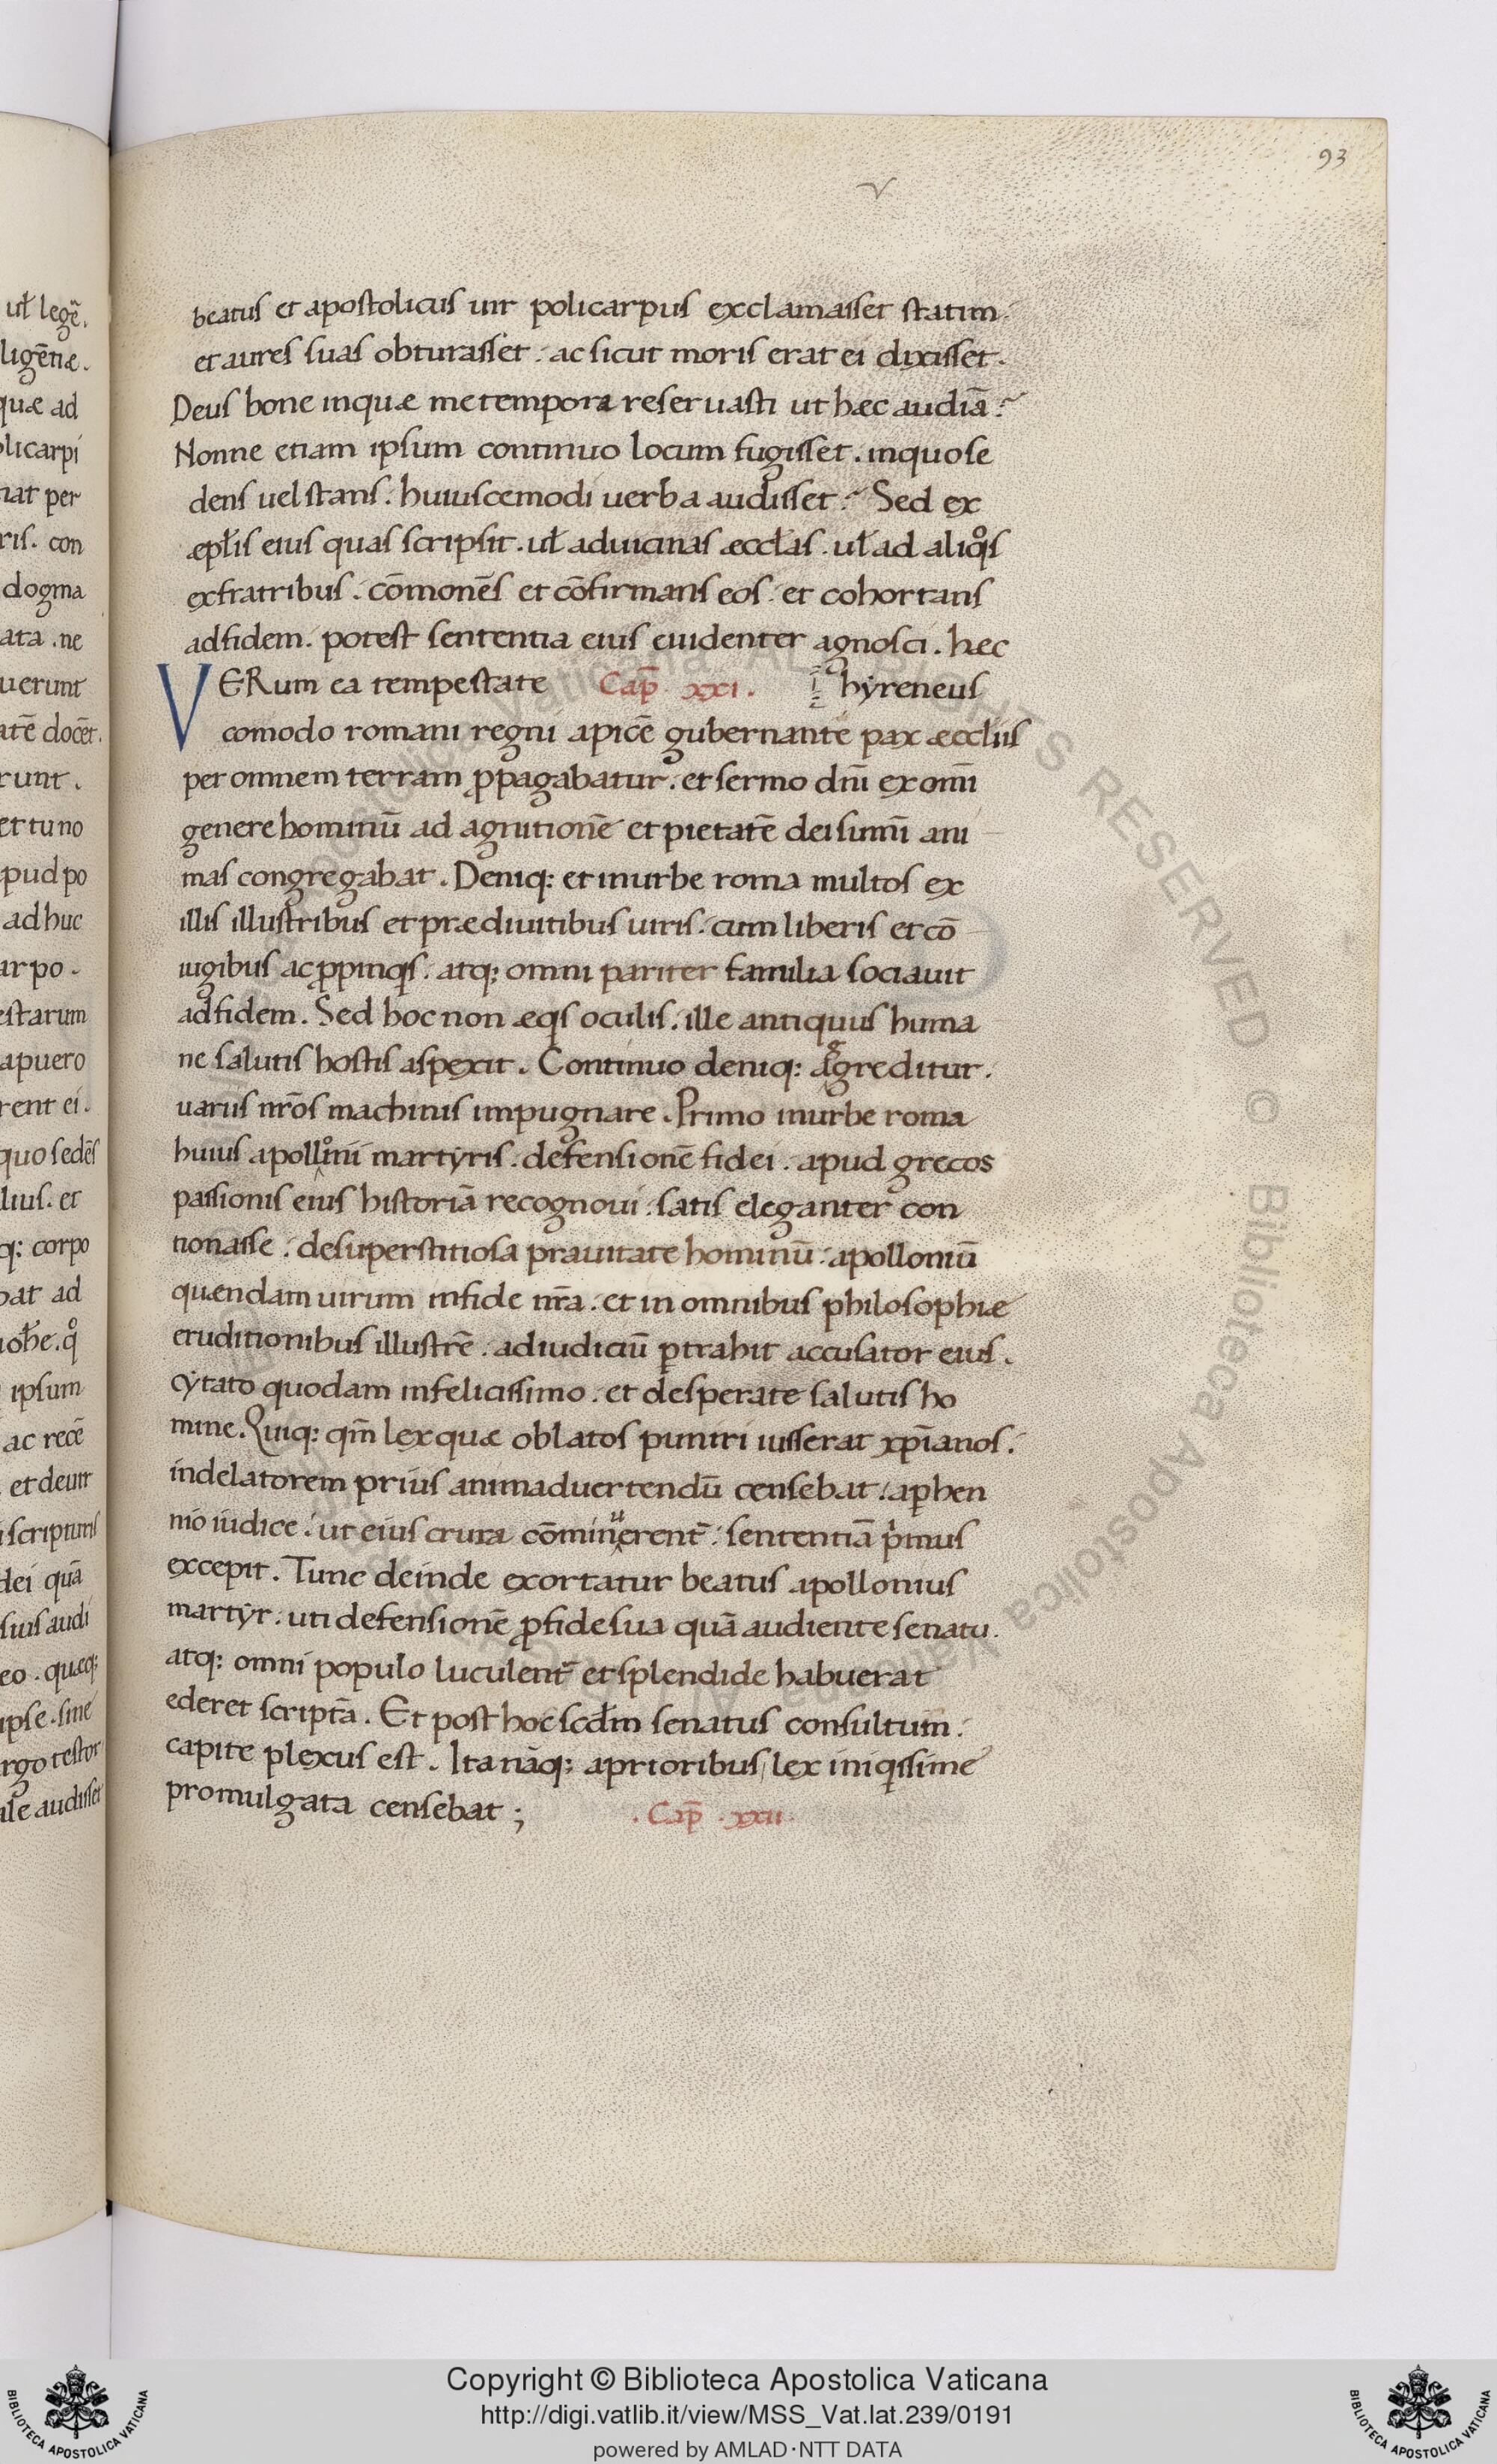 93
v
beatus et apostolicus uir policarpus exclamasset statim.
et aures suas obturasset. ac sicut moris erat ei dixisset.
Deus bone in quæ me tempora reseruasti ut hæc audiā?
Nonne etiam ipsum continuo locum fugisset. in quo se
dens uel stans. huiuscemodi uerba audisset? Sed ex
æpłis eius quas scripsit. uł ad uicinas æccłas. uł ad aliqͦs
ex fratribus. cōmonēs et cōfirmans eos. et cohortans
ad fidem. potest sententia eius euidenter agnosci. hæc
VERum ea tempestate Cap̄ xxi. hyreneus
comodo romani regni apicē gubernante pax æccliis
per omnem terram ꝓpagabatur. et sermo dn̄i ex omi̅
genere hominū ad agnitionē et pietatē dei sum̄i ani
mas congregabat. Deniq: et in urbe roma multos ex
illis illustribus et prædiuitibus uiris. cum liberis et cō
iugibus ac ꝓpinqis. atq: omni pariter familia sociauit
ad fidem. Sed hoc non æqis oculis. ille antiquus huma
ne salutis hostis aspexit. Continuo deniq: aggreditur.
uariis nr̄os machinis impugnare. Primo in urbe roma
huius apolloͦnii martyris. defensionē fidei. apud grecos
passionis eius historiā recognoui. satis eleganter con
tionasse. de superstitiosa prauitate hominū. apolloniū
quendam uirum in fide nr̄a. et in omnibus philosophiæ
eruditionibus illustrē. ad iudiciū ꝑtrahit accusator eius.
cytato quodam infelicissimo. et desperate salutis ho
mine. Quiq: qm̄ lex quæ oblatos puniri iusserat xp̄ianos.
in delatorem prius animaduertendū censebat. a perhen
nio iudice. ut eius crura cōminuerent̄. sententiā pͥmus
excepit. Tunc deinde exortatur beatus apollonius
martyr. uti defensionē ꝓ fide sua quā audiente senatu.
atq: omni populo luculent̄ et splendide habuerat
ederet scriptā. Et post hoc scd̄m senatus consultum.
capite plexus est. Ita nāq: a prioribus lex iniqissime
promulgata censebat;
. Cap̄ . xxii.
uł legē.
ligētiæ.
quæ ad
olicarpi
nat per
ris. con
dogma
ata. ne
uerunt
atē docēt.
runt.
et tu no
pud po
adhuc
ar po.
estarum
a puero
rent ei.
quo sedēs
lius. et
q: corpo
bat ad
ipsum
ac recē
scripturis
dei quā
suis audi
eo. quæq:
ipse. sine
rgo testor
ale audisset
Copyright © Biblioteca Apostolica Vaticana
http://digi.vatlib.it/view/MSS_Vat.lat.239/0191
powered by AMLAD·NTT DATA
BIBLIOTECA APOSTOLICA VATICANA
BIBLIOTECA APOSTOLICA VATICANA